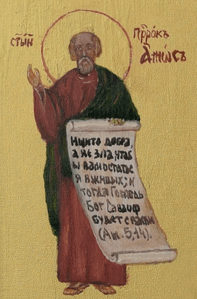 СТЫЙ
ПРРОКЪ
АМѠСЪ
Ищите добра,
а не зла, чтоб
ы вам остать
ся в живых; и
тогда Господь
Бог Саваоф
будет с вами
(Ам. 5,14).